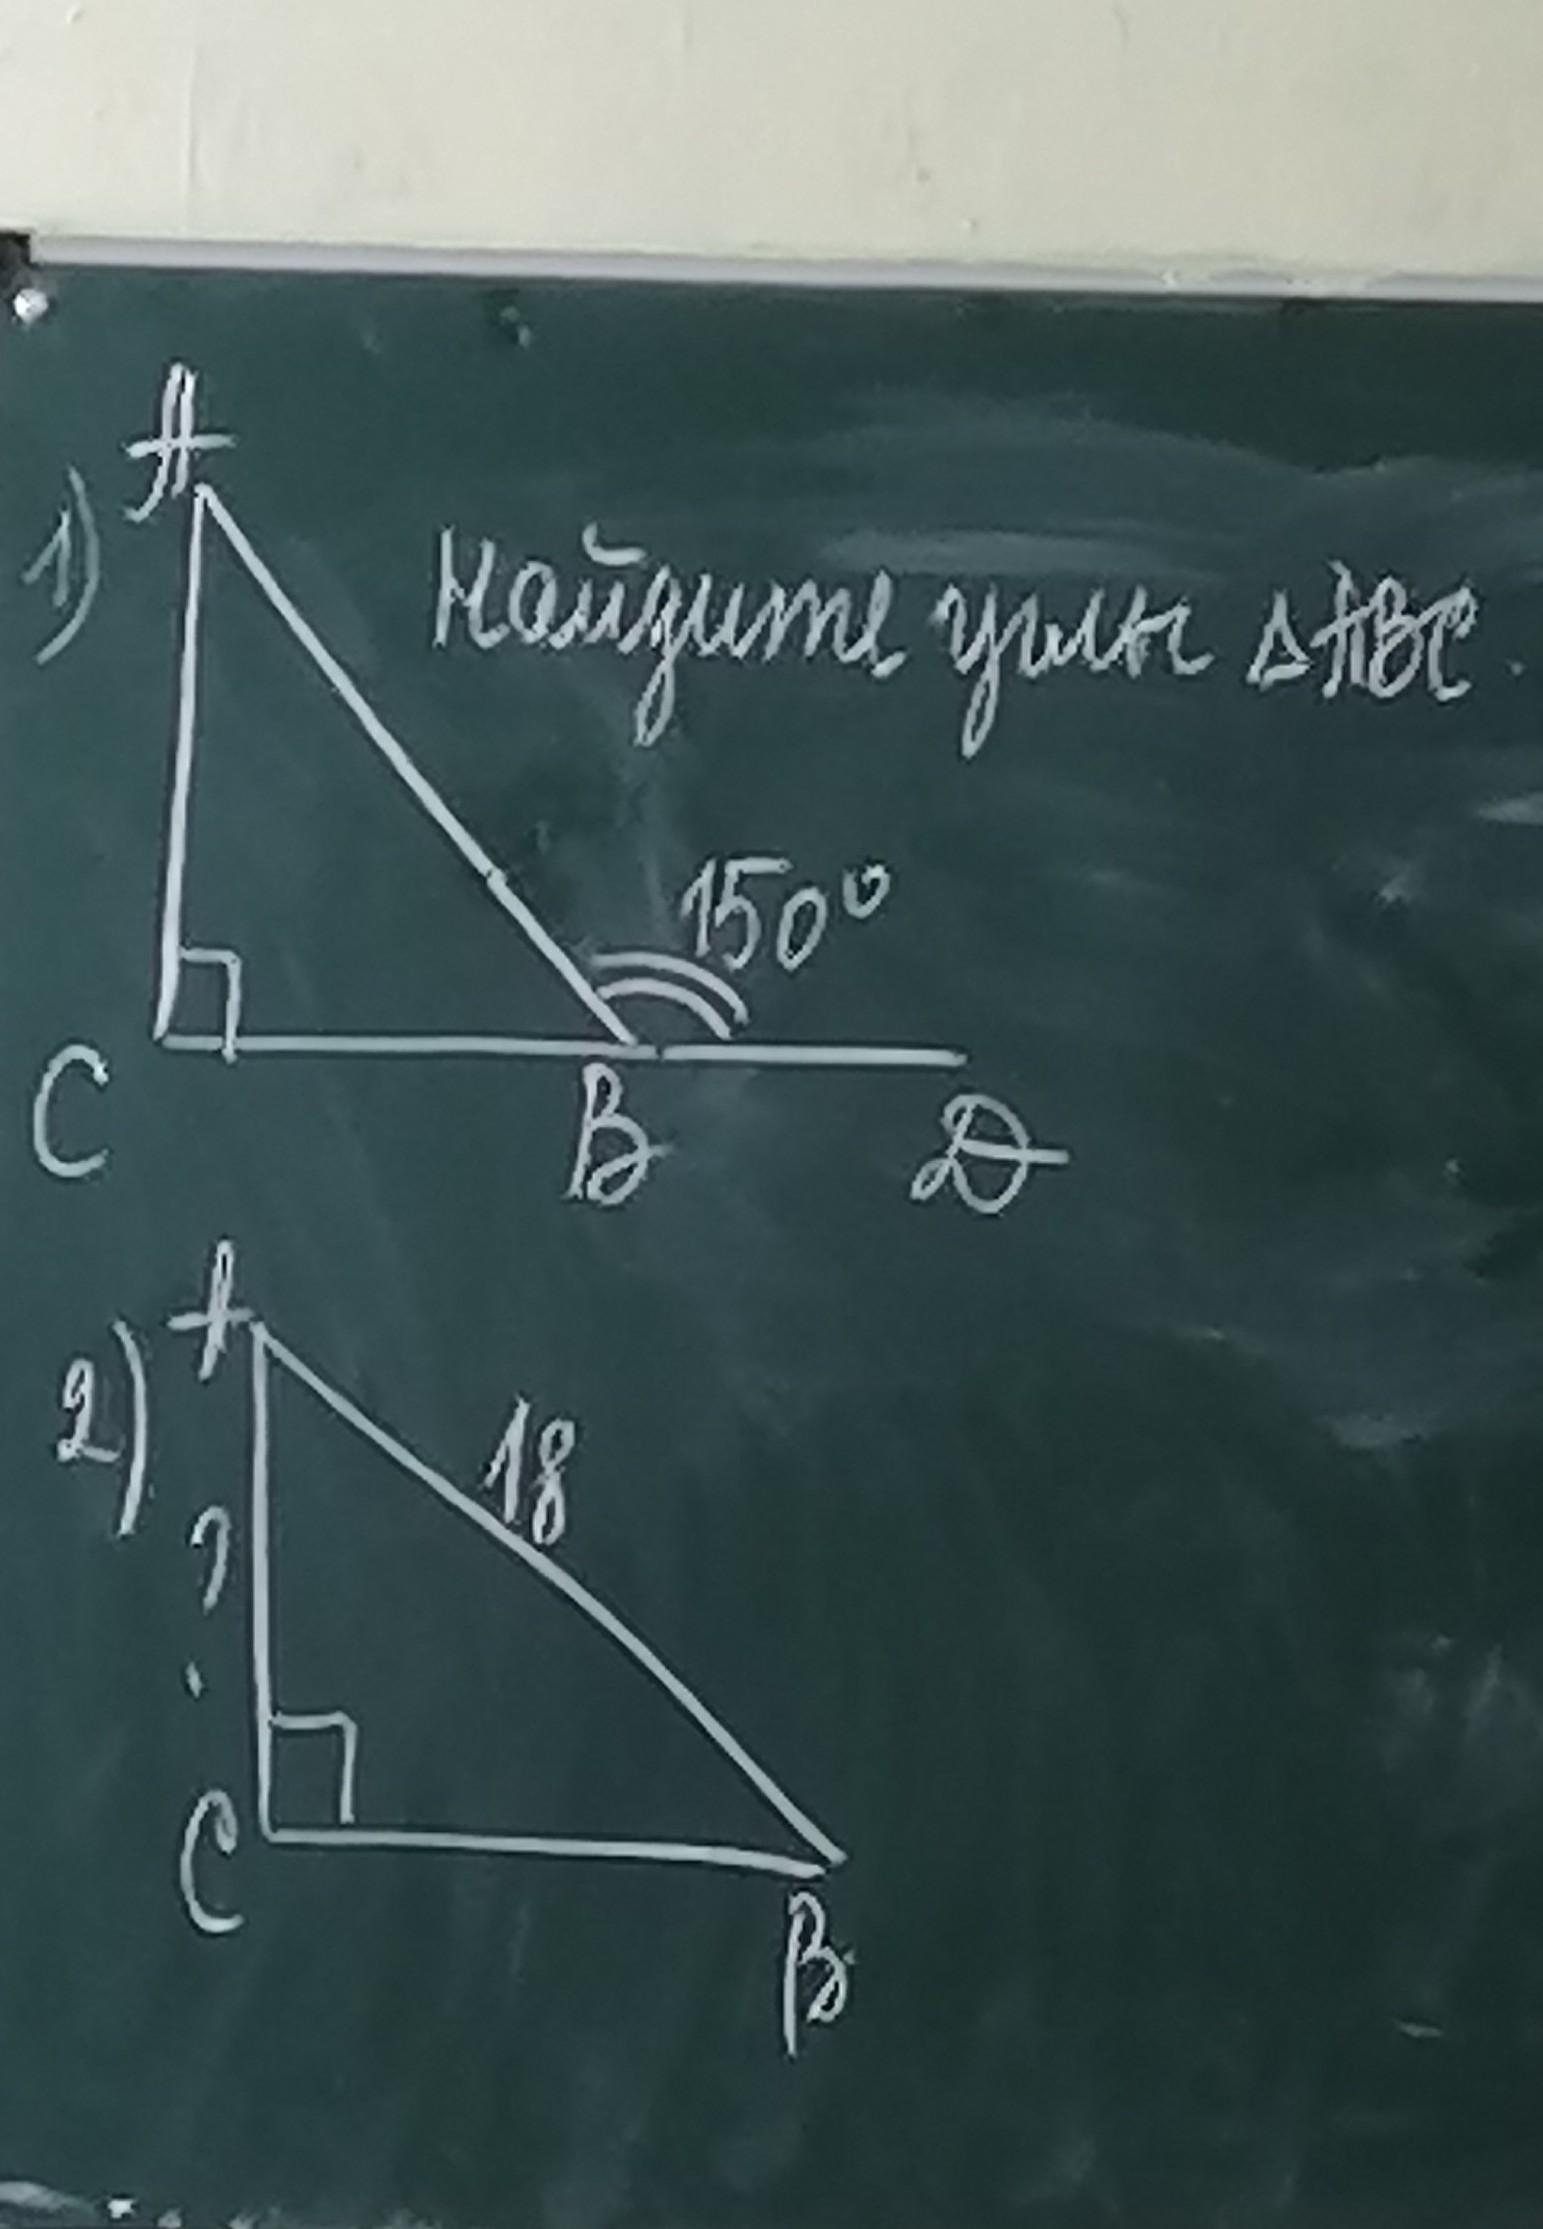 A
1)
Найдите углы ΔABC.
150°
C
B
D
A
2)
18
?
C
B